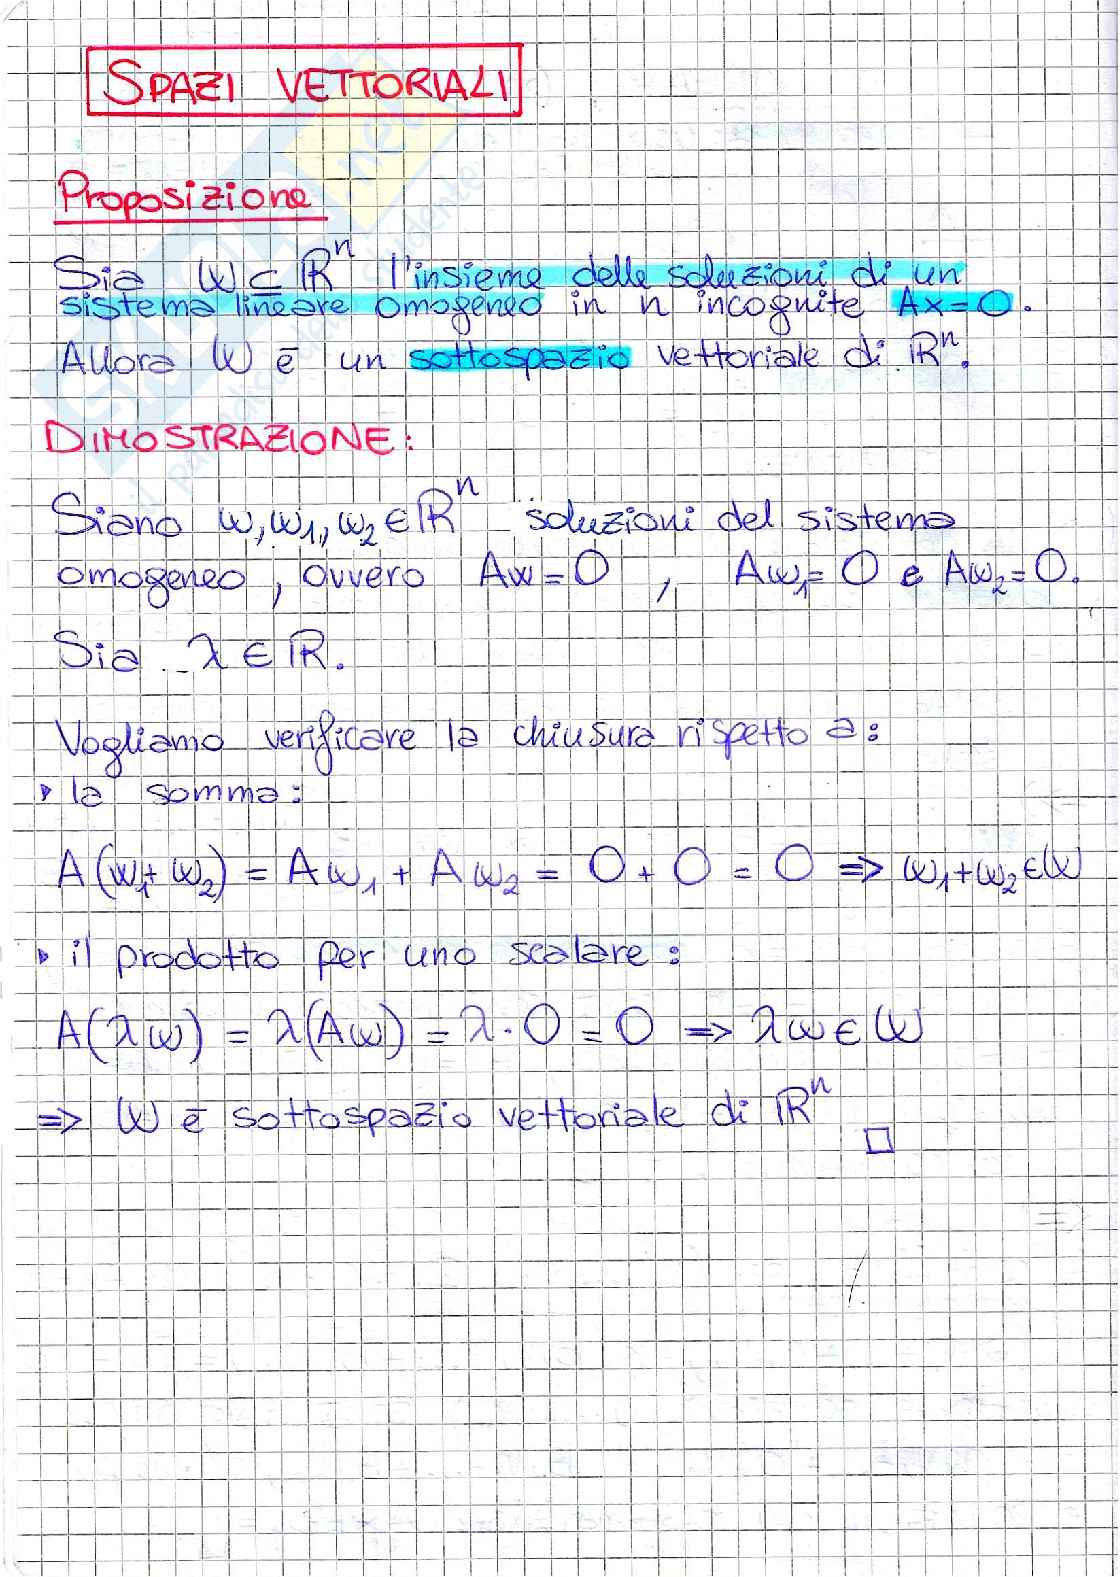 SPAZI VETTORIALI
Proposizione
Sia W ⊆ ℝⁿ l'insieme delle soluzioni di un
sistema lineare omogeneo in n incognite Ax=0.
Allora W è un sottospazio vettoriale di ℝⁿ.
DIMOSTRAZIONE:
Siano w, w₁, w₂ ∈ ℝⁿ soluzioni del sistema
omogeneo, ovvero Aw = 0, Aw₁ = 0 e Aw₂ = 0.
Sia λ ∈ ℝ.
Vogliamo verificare la chiusura rispetto a:
▸ la somma:
A(w₁+w₂) = Aw₁ + Aw₂ = 0 + 0 = 0 => w₁+w₂ ∈ W
▸ il prodotto per uno scalare:
A(λw) = λ(Aw) = λ·0 = 0 => λw ∈ W
=> W è sottospazio vettoriale di ℝⁿ □